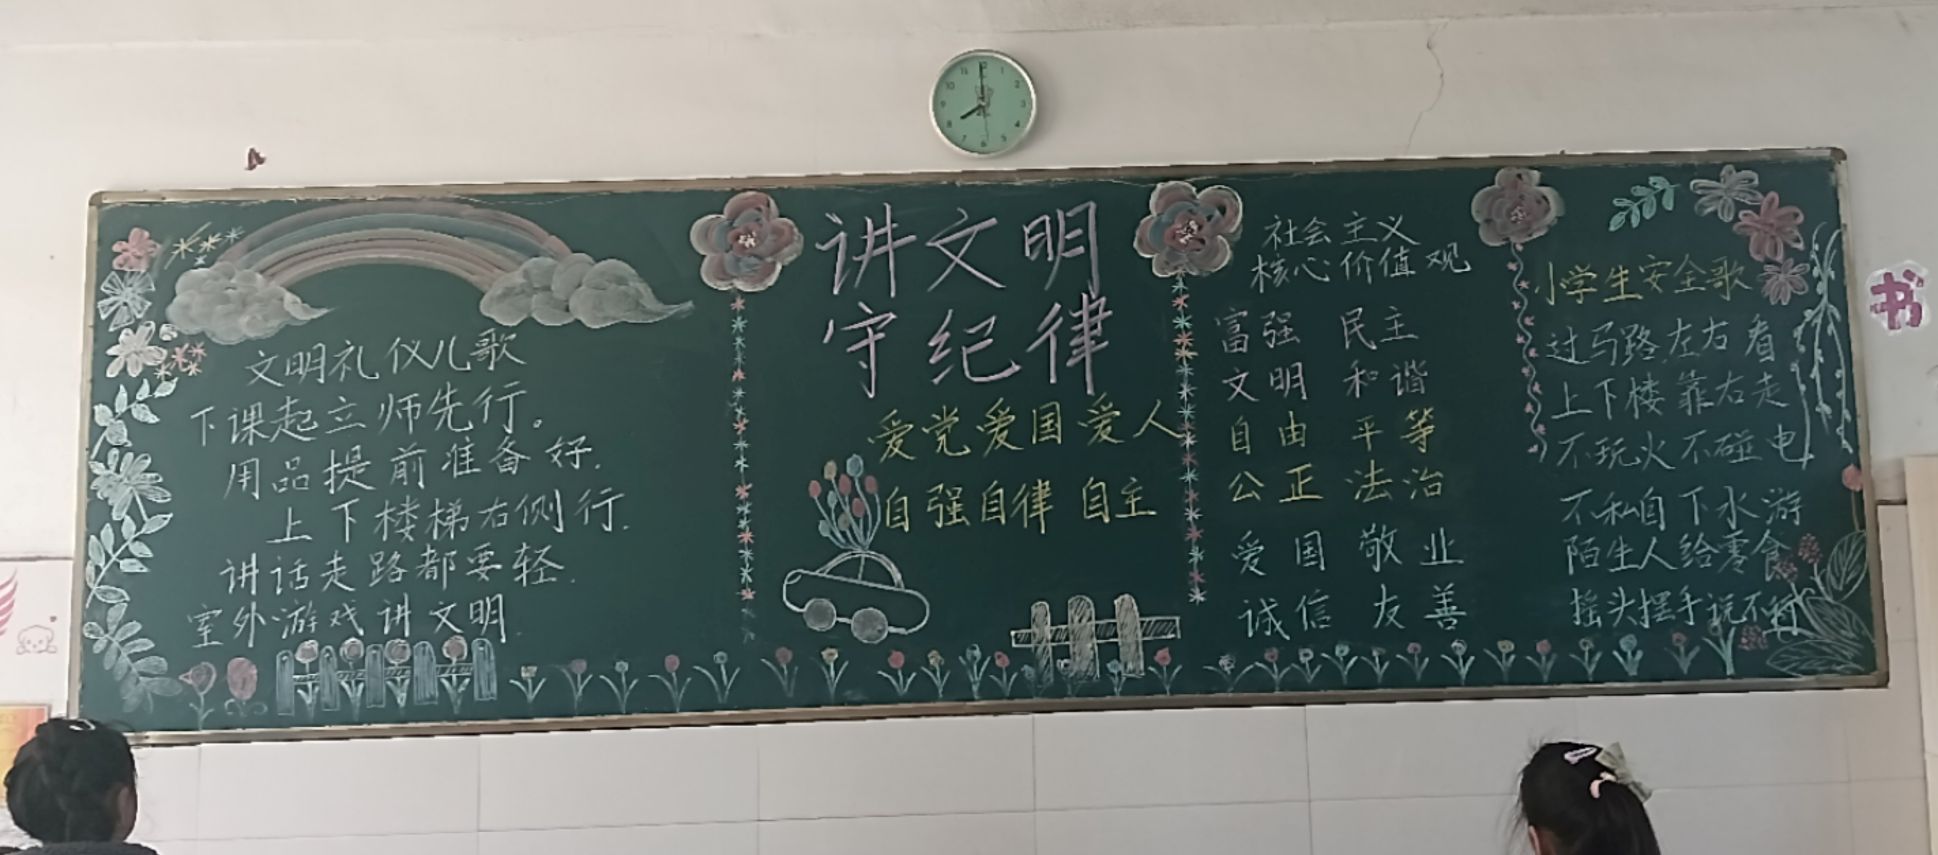 文明礼仪儿歌
下课起立师先行。
用品提前准备好.
上下楼梯右侧行.
讲话走路都要轻.
室外游戏讲文明.
讲文明
守纪律
爱党爱国爱人
自强自律自主
社会主义
核心价值观
富强 民主
文明 和谐
自由 平等
公正 法治
爱国 敬业
诚信 友善
小学生安全歌
过马路左右看
上下楼靠右走
不玩火不碰电
不私自下水游
陌生人给零食
摇头摆手说不
书